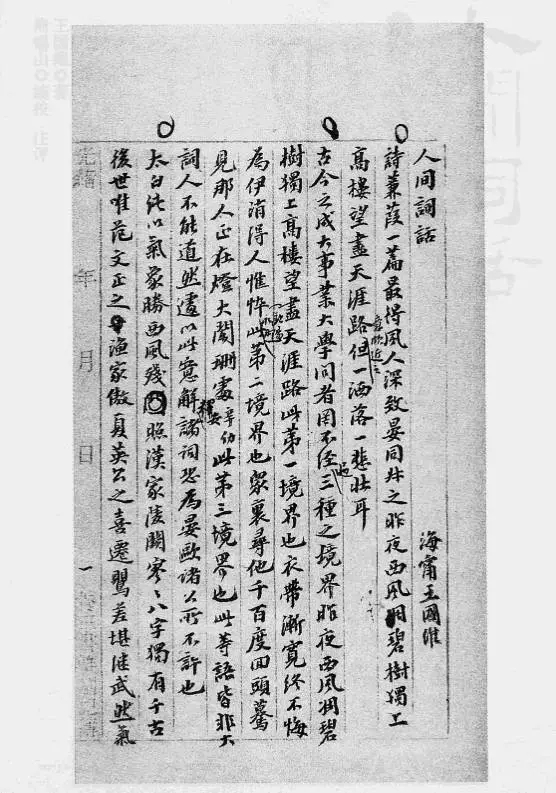 人间詞話
海甯王國維
詩蒹葭一篇最得風人深致晏同叔之昨夜西風凋碧樹獨上
高樓望盡天涯路意頗近之但一洒落一悲壯耳
古今之成大事業大學問者罔不經過三種之境界昨夜西風凋碧
樹獨上高樓望盡天涯路此第一境界也衣帶漸寬終不悔
為伊消得人憔悴此第二境界也衆裏尋他千百度回頭驀
見那人正在燈火闌珊處辛幼安此第三境界也此等語皆非大
詞人不能道然遽以此意解諸詞恐為晏歐諸公所不許也
太白純以氣象勝西風殘照漢家陵闕寥〻八字獨有千古
後世唯范文正之漁家傲夏英公之喜遷鶯差堪繼武然氣
光緒 年 月 日 一